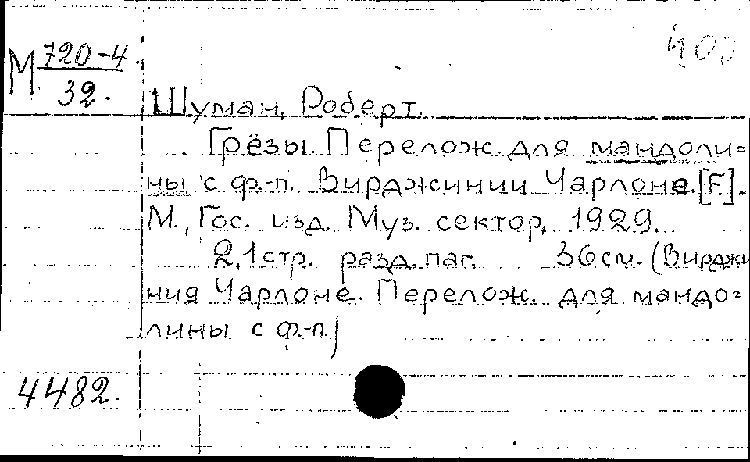 М 720-4
32.
400
Шуман, Роберт.
Грёзы. Перелож. для мандоли=
ны с ф.-п. Вирджинии Чарлоне. [F].
М., Гос. изд. Муз. сектор, 1929.
2,1 стр. разд. паг. 36 см. (Вирджи
ния Чарлоне. Перелож. для мандо=
лины с ф.-п.)
4482.